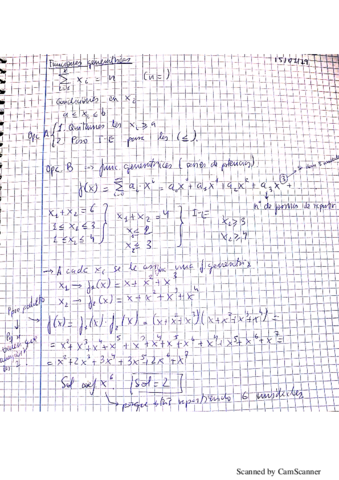 Funciones generatrices
15/02/24
∑ xᵢ = n
Condiciones en xᵢ
a ≤ xᵢ ≤ b
Opc. A 1. Quitamos los xᵢ ≥ a
2. Paso I-E para los (≤).
Opc. B → func generatrices (series de potencias)
f(x) = ∑ aᵢ xⁱ = a₀x⁰ + a₁x¹ + a₂x² + a₃x³
nº de formas de repartir
x₁ + x₂ = 6
1 ≤ x₁ ≤ 3
1 ≤ x₂ ≤ 4
x₁ + x₂ = 4
x₁ ≤ 2
x₂ ≤ 3
I-E
x₁ ≥ 3
x₂ ≥ 4
→ A cada xᵢ se le asigna una f generatriz
x₁ → f₁(x) = x + x² + x³
x₂ → f₂(x) = x + x² + x³ + x⁴
f(x) = f₁(x) · f₂(x) = (x + x² + x³)(x + x² + x³ + x⁴) =
= x² + x³ + x⁴ + x⁵ + x³ + x⁴ + x⁵ + x⁶ + x⁴ + x⁵ + x⁶ + x⁷ =
= x² + 2x³ + 3x⁴ + 3x⁵ + 2x⁶ + x⁷
Sol coef x⁶. Sol = 2
porque están repartiendo 6 unidades
Scanned by CamScanner